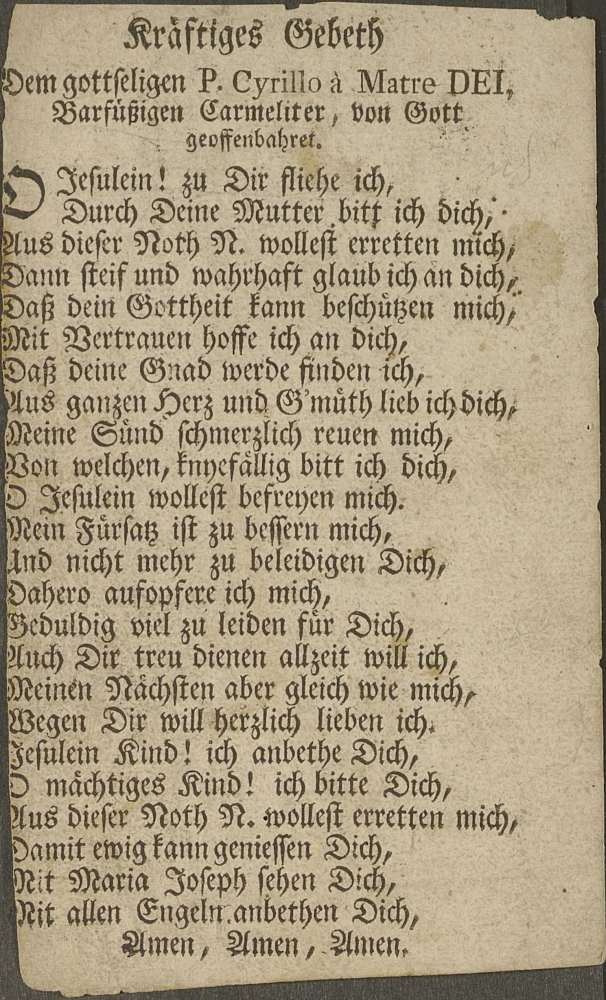 Kräftiges Gebeth
Dem gottseligen P. Cyrillo à Matre DEI,
Barfüßigen Carmeliter, von Gott
geoffenbahret.
O Jesulein! zu Dir fliehe ich,
Durch Deine Mutter bitt ich dich,
Aus dieser Noth N. wollest erretten mich,
Dann steif und wahrhaft glaub ich an dich,
Daß dein Gottheit kann beschützen mich,
Mit Vertrauen hoffe ich an dich,
Daß deine Gnad werde finden ich,
Aus ganzen Herz und G'müth lieb ich dich,
Meine Sünd schmerzlich reuen mich,
Von welchen, knyefällig bitt ich dich,
O Jesulein wollest befreyen mich.
Mein Fürsatz ist zu bessern mich,
Und nicht mehr zu beleidigen Dich,
Dahero aufopfere ich mich,
Geduldig viel zu leiden für Dich,
Auch Dir treu dienen allzeit will ich,
Meinen Nächsten aber gleich wie mich,
Wegen Dir will herzlich lieben ich.
Jesulein Kind! ich anbethe Dich,
O mächtiges Kind! ich bitte Dich,
Aus dieser Noth N. wollest erretten mich,
Damit ewig kann geniessen Dich,
Mit Maria Joseph sehen Dich,
Mit allen Engeln anbethen Dich,
Amen, Amen, Amen.